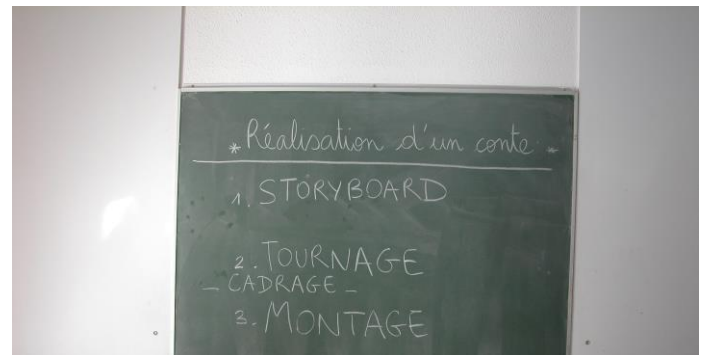 * Réalisation d'un conte *
1. STORYBOARD
2. TOURNAGE
- CADRAGE -
3. MONTAGE